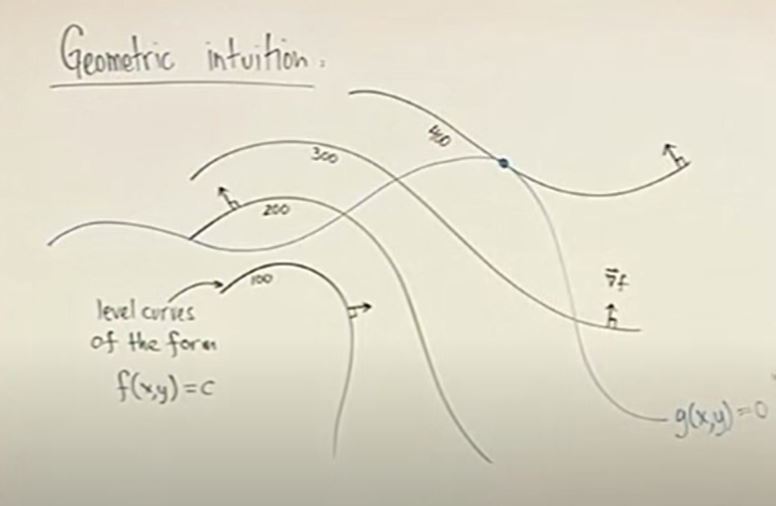 Geometric intuition:
400
300
200
100
level curves
of the form
f(x,y)=c
∇f
g(x,y)=0